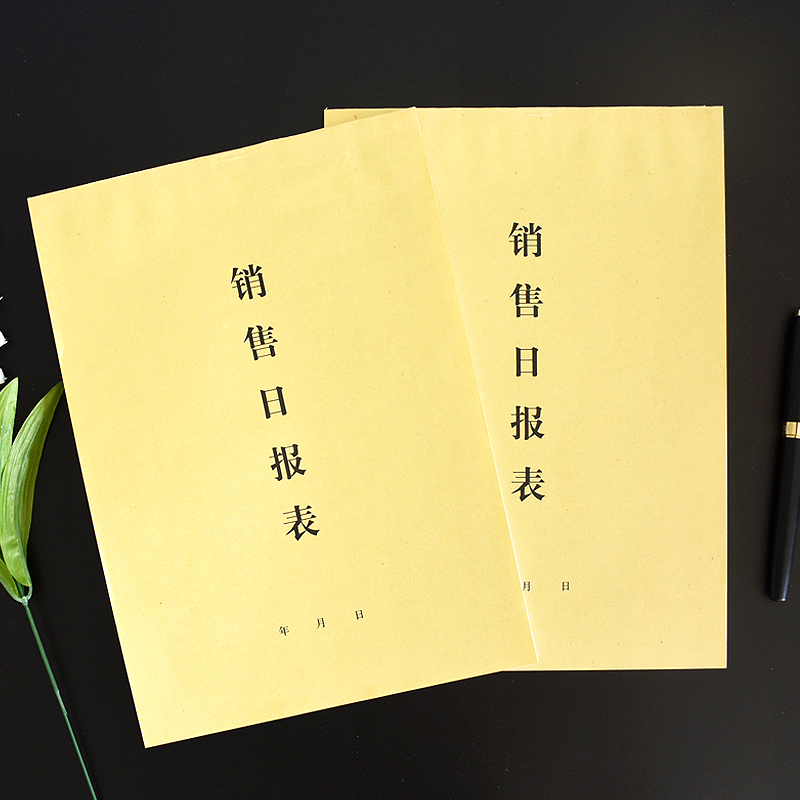 销售日报表
年 月 日
销售日报表
月 日